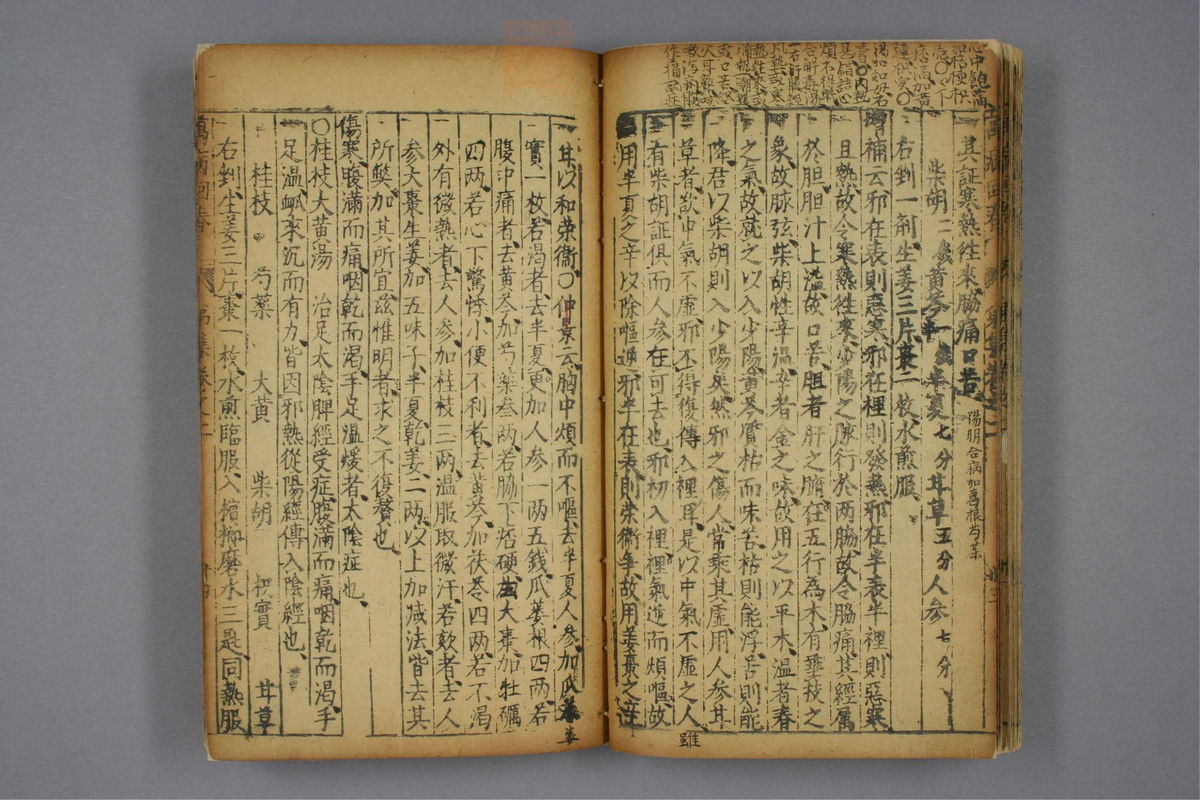 其証寒熱往來脇痛口苦
陽明合病加葛根芍藥
柴胡二錢黃芩一錢半夏七分甘草五分人參七分
右剉一劑生姜三片棗一枚水煎服
補云邪在表則惡寒邪在裡則發熱邪在半表半裡則惡寒
且熱故令寒熱往來少陽之脉行於兩脇故令脇痛其經属
於胆胆汁上溢故口苦胆者肝之腑在五行為木有垂枝之
象故脉弦柴胡性辛溫辛者金之味故用之以平木溫者春
之氣故就之以入少陽黃芩質枯而味苦枯則能浮苦則能
降君以柴胡則入少陽矣然邪之傷人常乘其虛用人參甘
草者欲中氣不虛邪不得復傳入裡耳是以中氣不虛之人
有柴胡証俱而人參在可去也邪初入裡裡氣逆而煩嘔故
用半夏之辛以除嘔逆邪半在表則荣衛争故用姜棗之辛
甘以和荣衛〇仲景云胸中煩而不嘔去半夏人參加瓜蔞
實一枚若渴者去半夏更加人參一兩五錢瓜蔞根四兩若
腹中痛者去黃芩加芍藥叁兩若脇下痞硬去大棗加牡礪
四兩若心下驚悸小便不利者去黃芩加茯苓四兩若不渴
外有微熱者去人參加桂枝三兩溫服取微汗若欬者去人
參大棗生姜加五味子半夏乾姜二兩以上加减法皆去其
所弊加其所宜兹惟明者求之不復贅也
傷寒腹滿而痛咽乾而渴手足溫煖者太陰症也
〇桂枝大黃湯 治足太陰脾經受症腹滿而痛咽乾而渴手
足溫脉來沉而有力皆因邪熱從陽經傳入陰經也
桂枝 芍藥 大黃 柴胡 枳實 甘草
右剉生姜三片棗一枚水煎臨服入檳榔磨水三匙同熱服